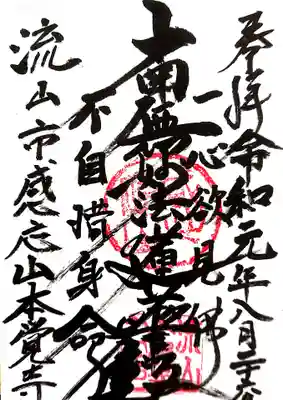 奉拝 令和元年八月二十六
一心欲見佛
南無妙法蓮華経
不自惜身命
流山市感応山本覚寺